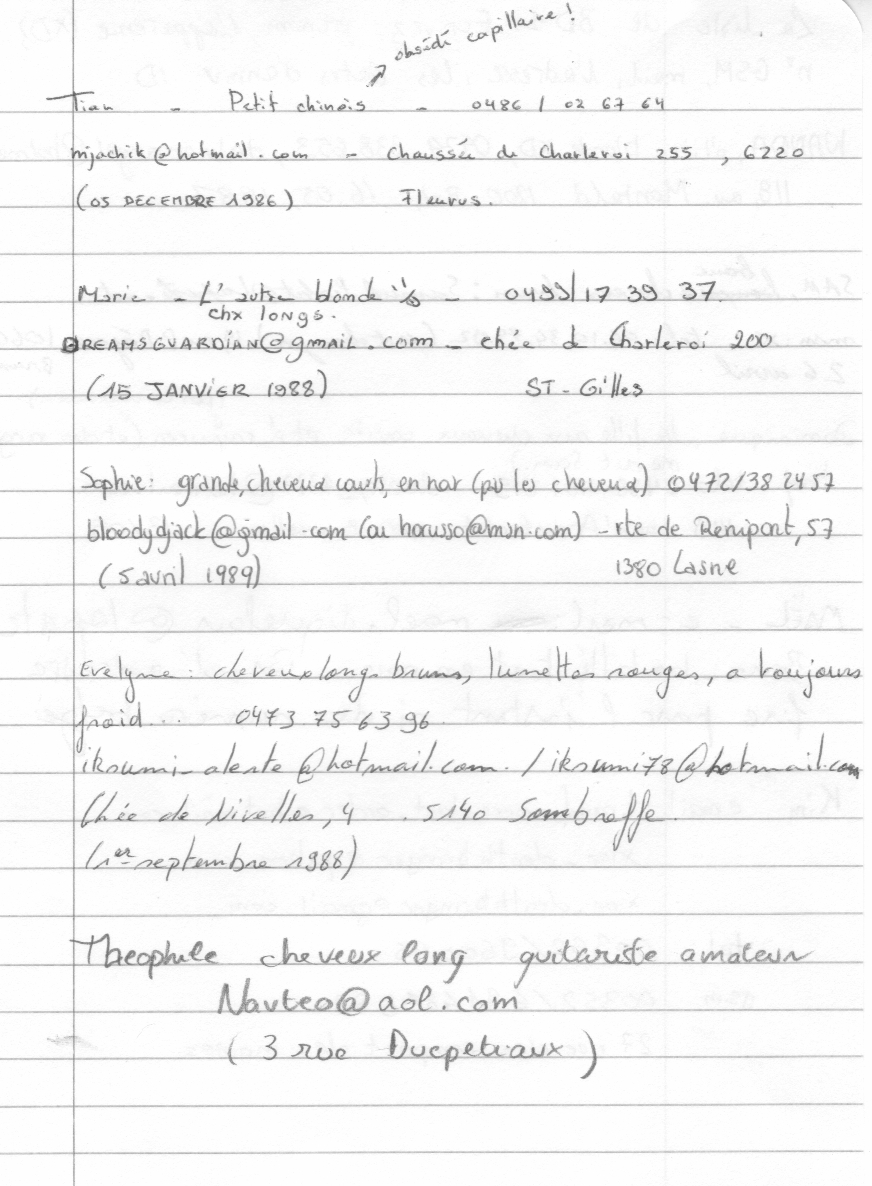 obsédé capillaire !
Tian - Petit chinois - 0486 / 02 67 64
mjachik@hotmail.com - Chaussée de Charleroi 255 , 6220
(05 DECEMBRE 1986) Fleurus.
Marie - L'autre blonde - 0499/17 39 37
chx longs.
DREAMSGUARDIAN@gmail.com - chée de Charleroi 200
(15 JANVIER 1988) ST-Gilles
Sophie : grande, cheveux courts, en noir (pas les cheveux) 0472/38 24 57
bloodydjack@gmail.com (ou horusso@msn.com) - rte de Renipont, 57
(5 avril 1989) 1380 Lasne
Evelyne : cheveux longs bruns, lunettes rouges, a toujours
froid... 0473 75 63 96
@hotmail.com. / iksumi78@hotmail.com
Chée de Nivelles, 4 . 5140 Sombreffe.
(1er septembre 1988)
Theophile cheveux long guitariste amateur
Navteo@aol.com
(3 rue Ducpetiaux)